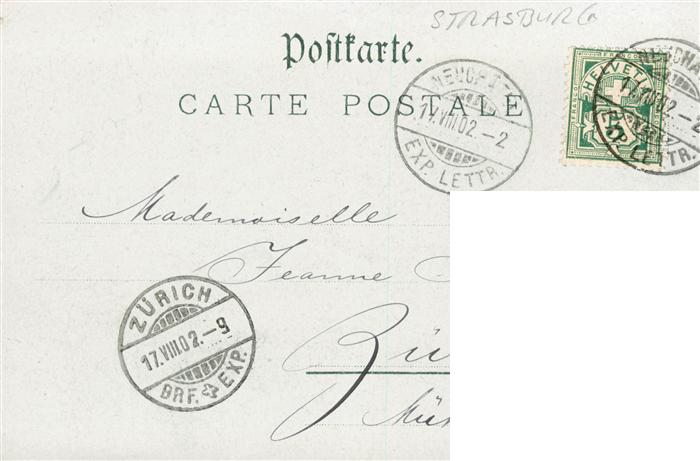 STRASBURG
Postkarte.
CARTE POSTALE
17.VIII.02.-2
EXP. LETTR.
HELVETIA
5
17.VIII.02.-2
EXP. LETTR.
Mademoiselle
Jeanne
ZÜRICH
17.VIII.02.-9
BRF. EXP.